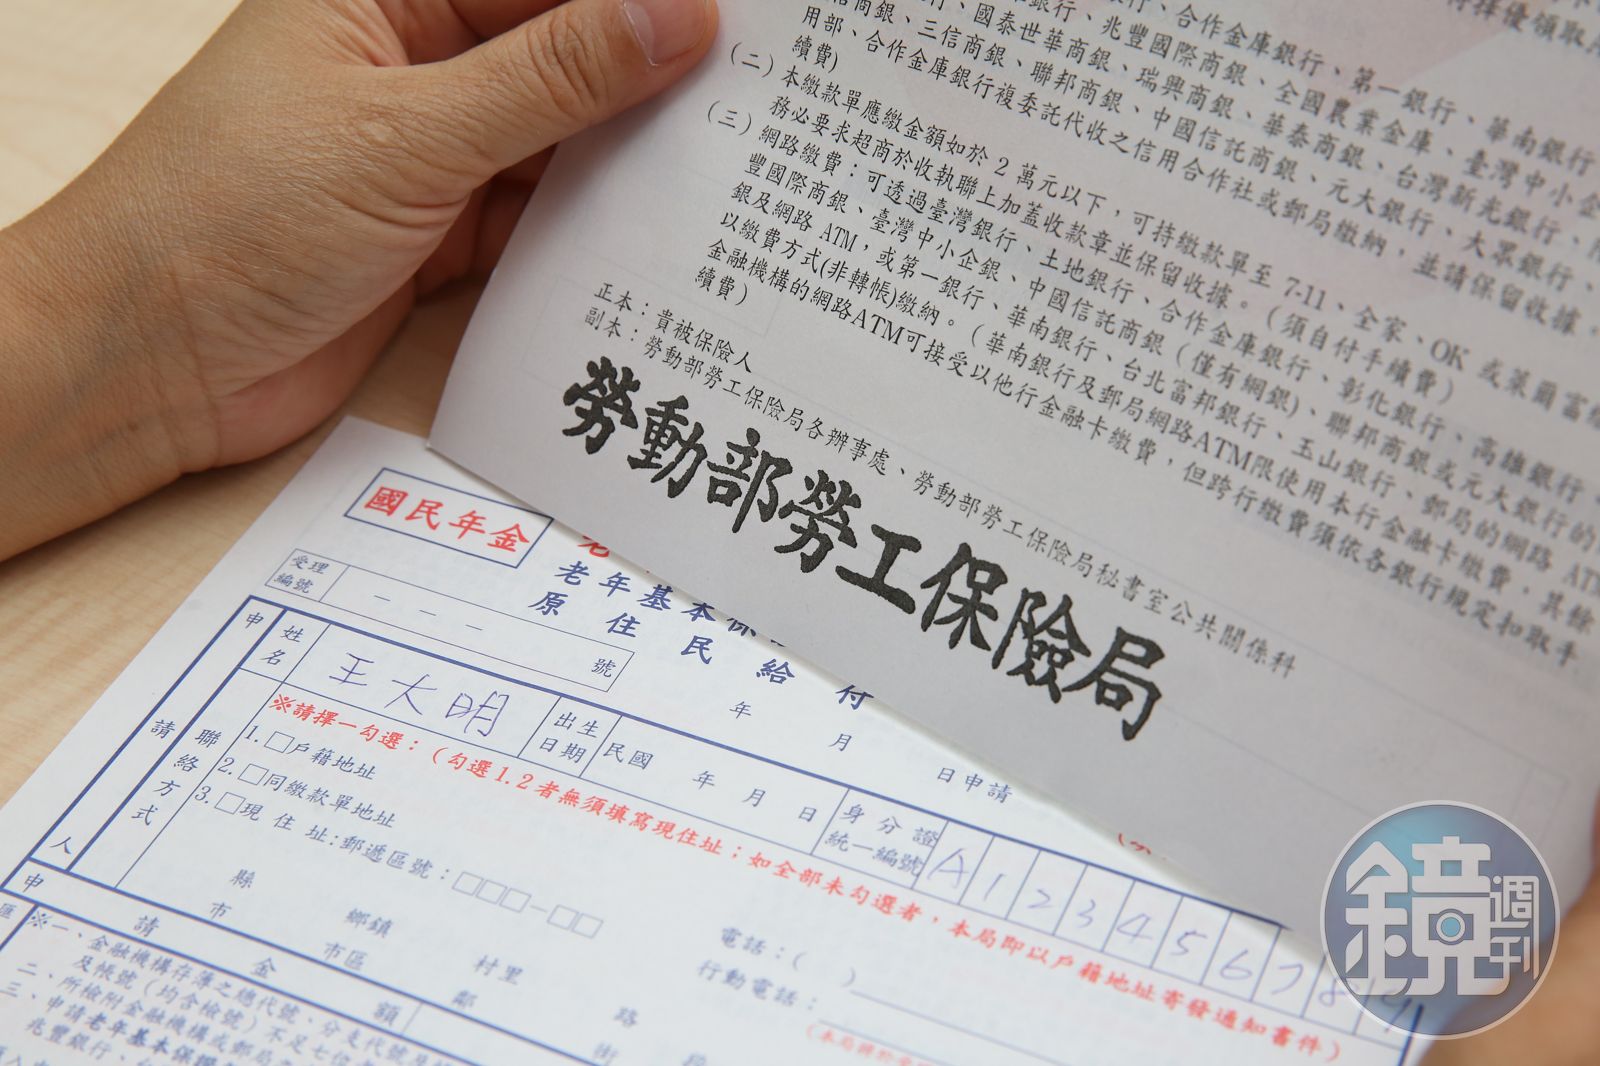 行、兆豐國際商銀、全國農業金庫、臺灣中小企
、合作金庫銀行、第一銀行、華南銀行
將擇優領取
、國泰世華商銀、瑞興商銀、華泰商銀、台灣新光銀行、
商銀、三信商銀、聯邦商銀、中國信託商銀、元大銀行、大眾銀行、
用部、合作金庫銀行複委託代收之信用合作社或郵局繳納，並請保留收據。
續費)
(二)本繳款單應繳金額如於 2 萬元以下，可持繳款單至 7-11、全家、OK 或萊爾富
務必要求超商於收執聯上加蓋收款章並保留收據。（須自付手續費）
(三)網路繳費：可透過臺灣銀行、土地銀行、合作金庫銀行、彰化銀行、高雄銀行、
豐國際商銀、臺灣中小企銀、中國信託商銀（僅有網銀)、聯邦商銀或元大銀行的
銀及網路 ATM，或第一銀行、華南銀行、台北富邦銀行、玉山銀行、郵局的網路 AT
以繳費方式(非轉帳)繳納。（華南銀行及郵局網路ATM限使用本行金融卡繳費，其餘
金融機構的網路ATM可接受以他行金融卡繳費，但跨行繳費須依各銀行規定扣取手
續費）
正本：貴被保險人
副本：勞動部勞工保險局各辦事處、勞動部勞工保險局秘書室公共關係科
勞動部勞工保險局
國民年金
老年基本保
原住民給付
受理編號
－－－ 號
年 月 日申請
申請人
姓名
王大明
出生日期
民國 年 月 日
身分證統一編號
A123456789
聯絡方式
※請擇一勾選：(勾選1.2者無須填寫現住址；如全部未勾選者，本局即以戶籍地址寄發通知書件)
1.□戶籍地址
2.□同繳款單地址
3.□現 住 址:郵遞區號：□□□-□□
縣市 鄉鎮市區 村里 鄰 路街 段
電話：( )
行動電話：
申請金額
※一、金融機構存簿之總代號、分支代號及
及帳號（均含檢號）不足七位
二、所檢附金融機構或郵局
三、申請老年基本保
兆豐銀行、台
鏡週刊